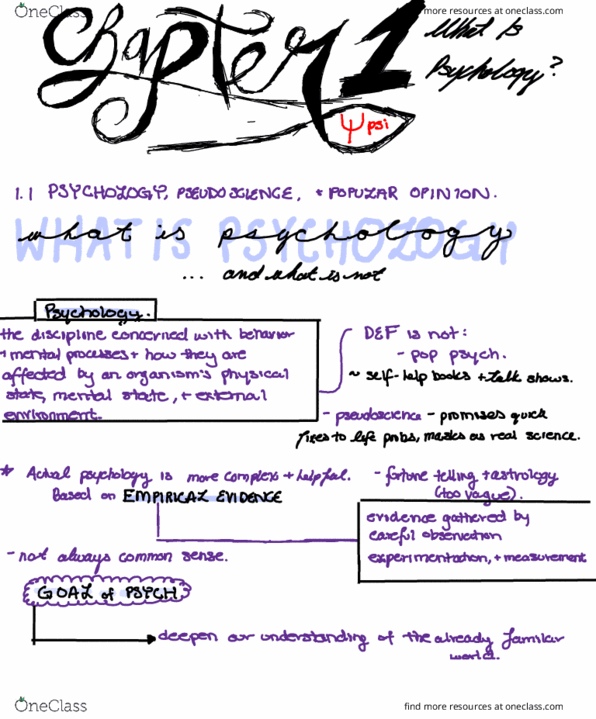 OneClass
find more resources at oneclass.com
Chapter 1
What is
Psychology?
Ψ psi
1.1 PSYCHOLOGY, PSEUDOSCIENCE, + POPULAR OPINION.
WHAT IS PSYCHOLOGY
what is psychology
... and what is not
Psychology.
the discipline concerned with behavior
+ mental processes + how they are
affected by an organism's physical
state, mental state, + external
environment.
DEF is not:
- pop psych.
~ self-help books + talk shows.
- pseudoscience - promises quick
fixes to life probs, masks as real science.
- fortune telling + astrology
(too vague).
* Actual psychology is more complex + helpful.
Based on EMPIRICAL EVIDENCE
evidence gathered by
careful observation
experimentation, + measurement
- not always common sense.
GOAL of PSYCH
deepen our understanding of the already familiar
world.
OneClass
find more resources at oneclass.com